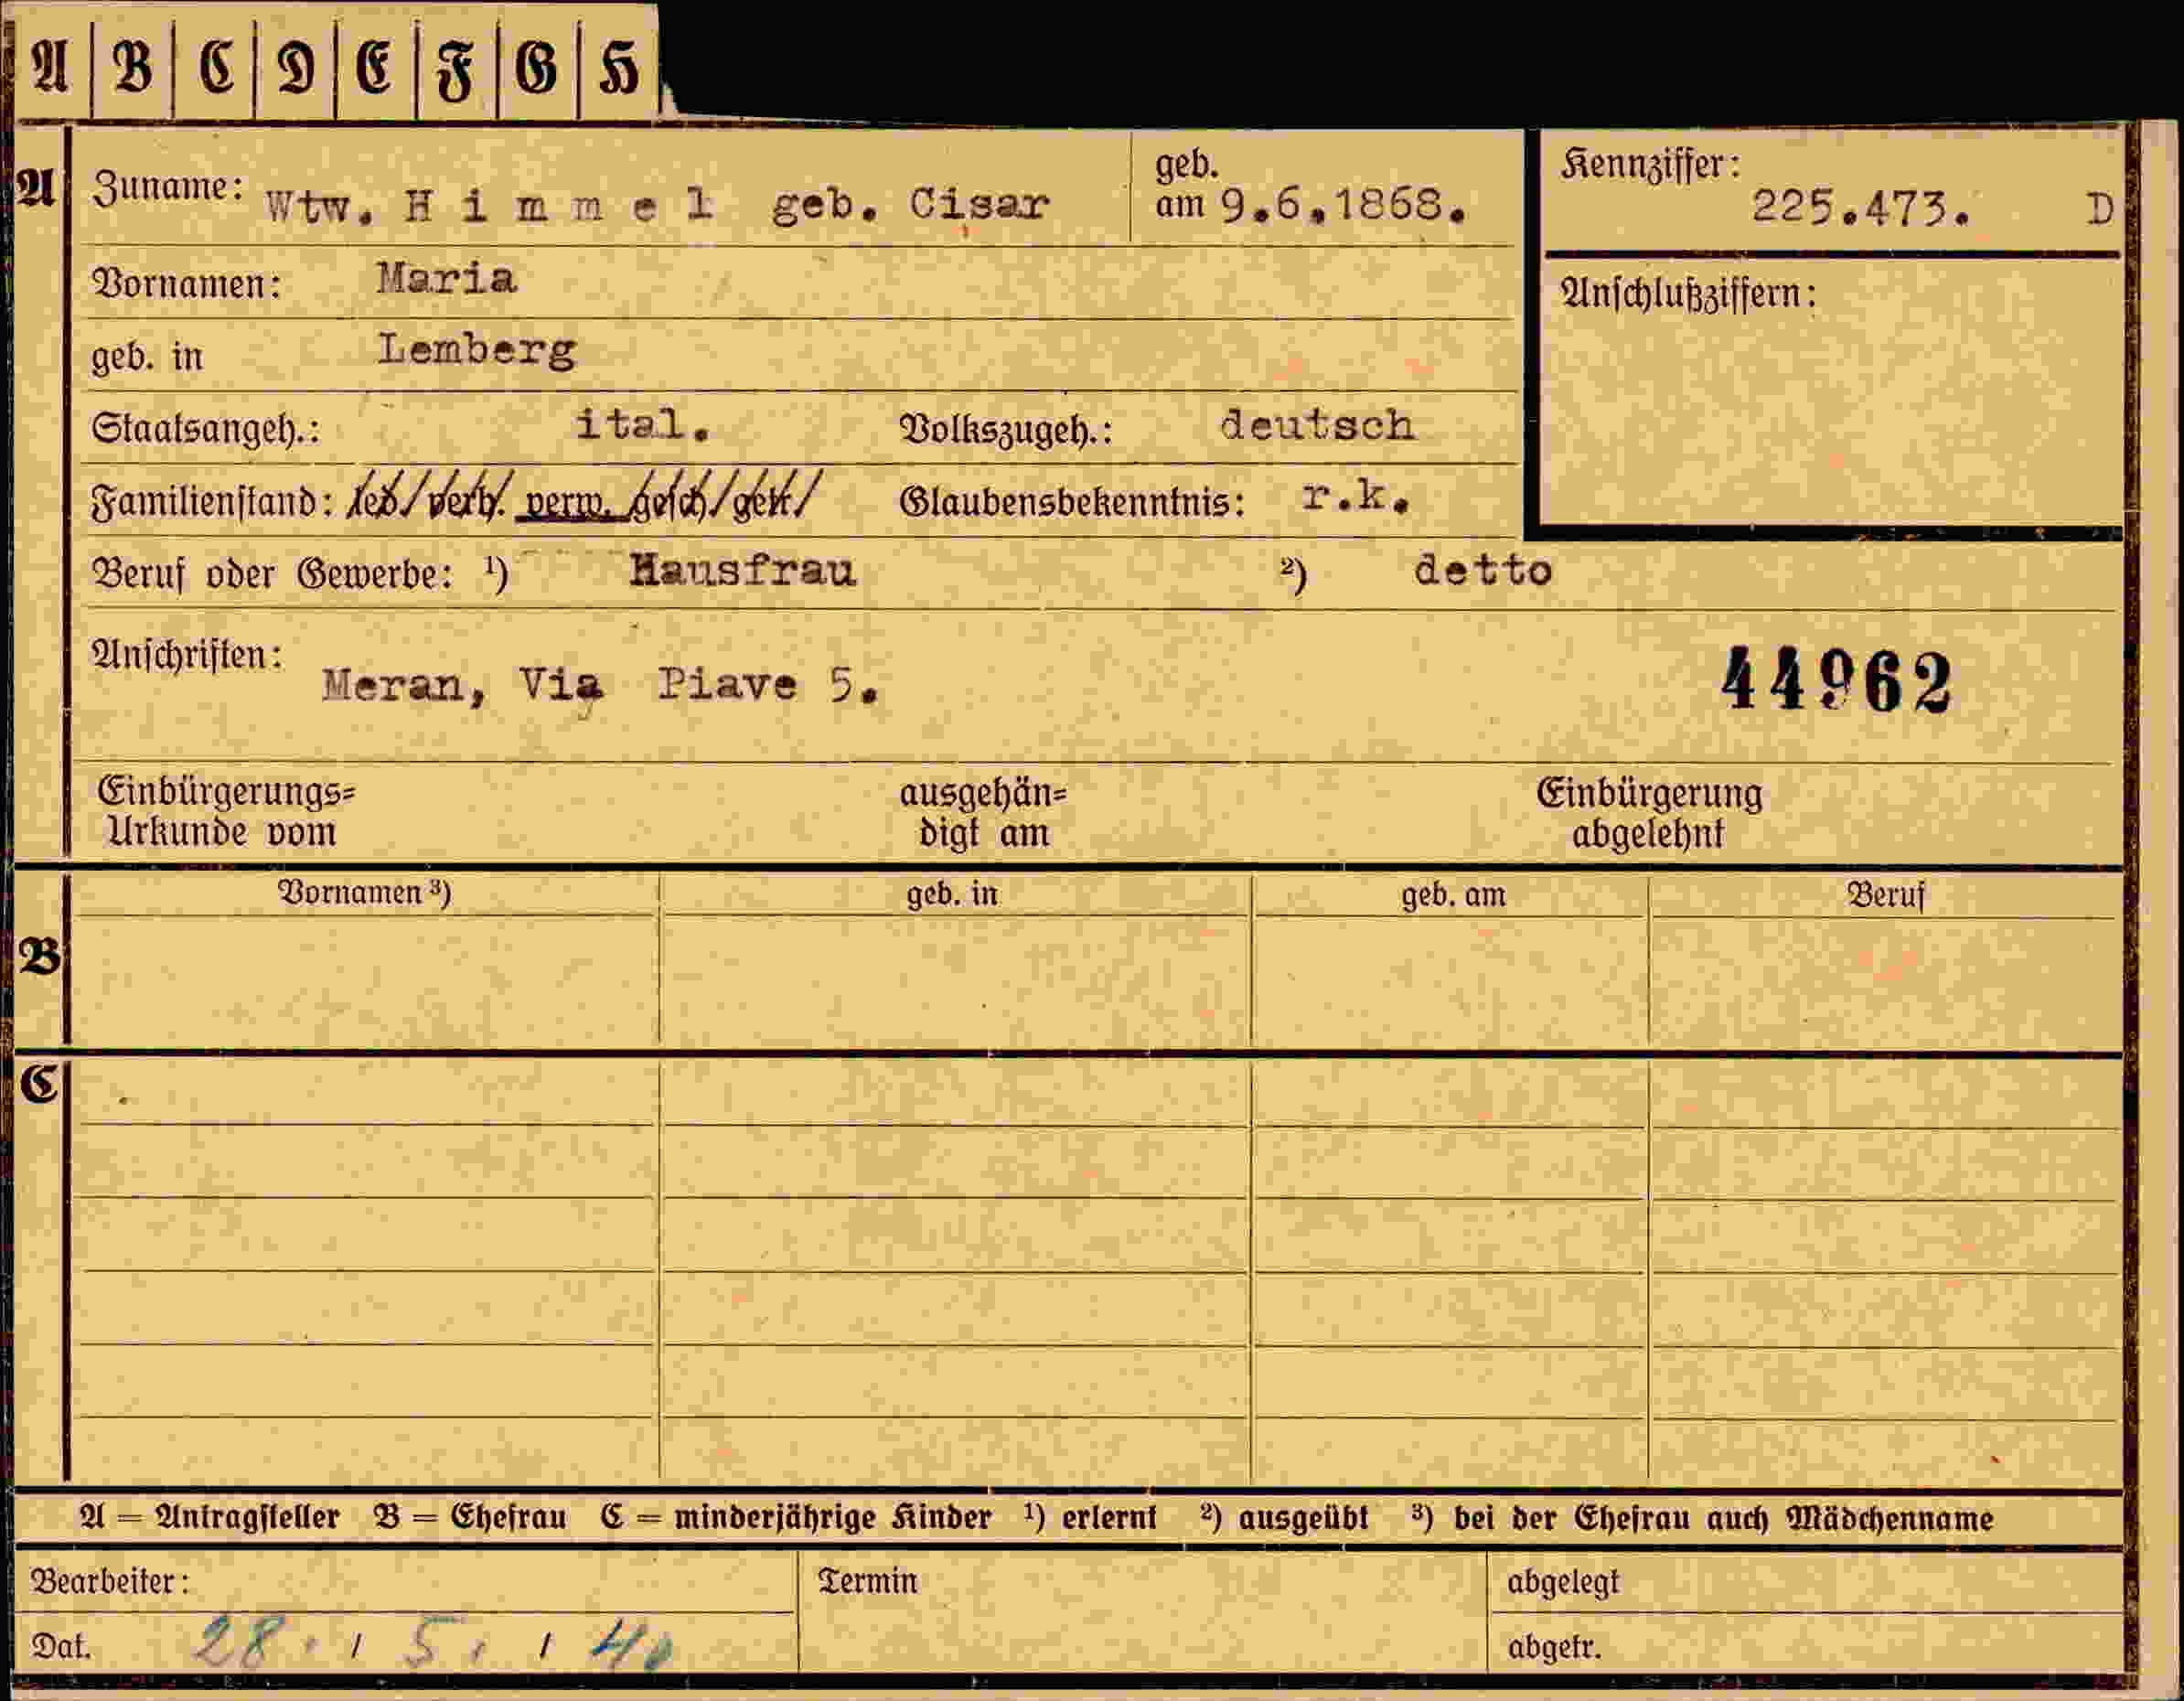 A B C D E F G H
A Zuname: Wtw. H i m m e l geb. Cisar geb. am 9.6.1868. Kennziffer: 225.473. D
Vornamen: Maria Anschlußziffern:
geb. in Lemberg
Staatsangeh.: ital. Volkszugeh.: deutsch
Familienstand: led/verh. verw. gesch/getr/ Glaubensbekenntnis: r.k.
Beruf oder Gewerbe: ¹) Hausfrau ²) detto
Anschriften: Meran, Via Piave 5. 44962
Einbürgerungs= ausgehän= Einbürgerung
Urkunde vom digt am abgelehnt
Vornamen ³) geb. in geb. am Beruf
B
C
A = Antragsteller B = Ehefrau C = minderjährige Kinder ¹) erlernt ²) ausgeübt ³) bei der Ehefrau auch Mädchenname
Bearbeiter: Termin abgelegt
Dat. 28. / 5. / 40 abgetr.